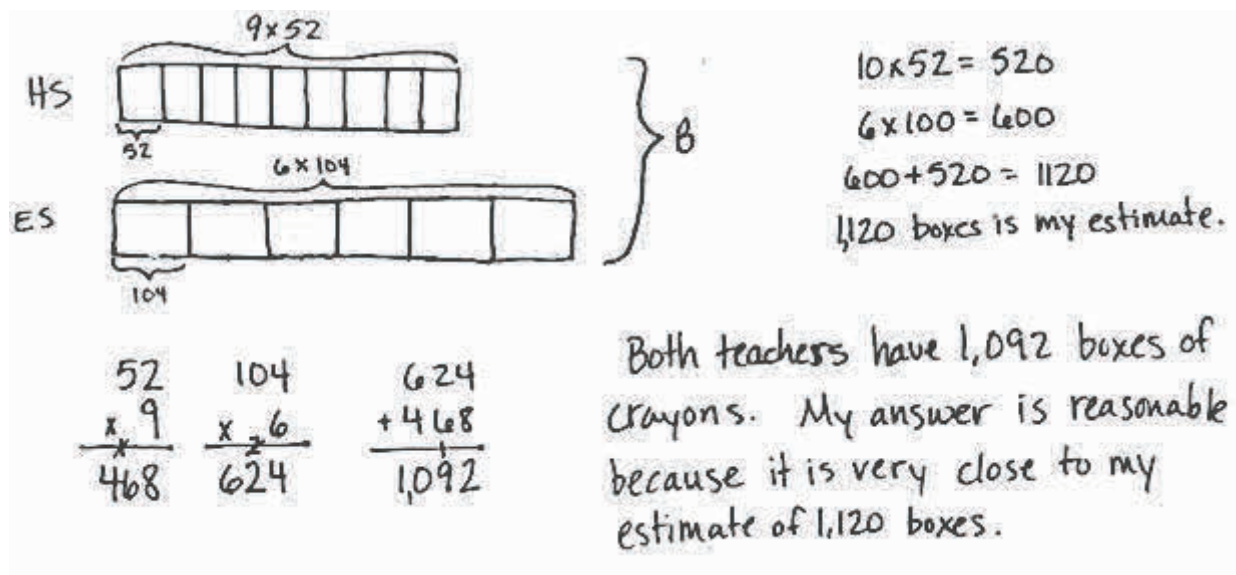 9x52
HS
52
6x104
ES
104
B
10x52= 520
6x100= 600
600+520= 1120
1,120 boxes is my estimate.
52
x 9
468
104
x 6
2
624
624
+468
1
1,092
Both teachers have 1,092 boxes of
crayons. My answer is reasonable
because it is very close to my
estimate of 1,120 boxes.